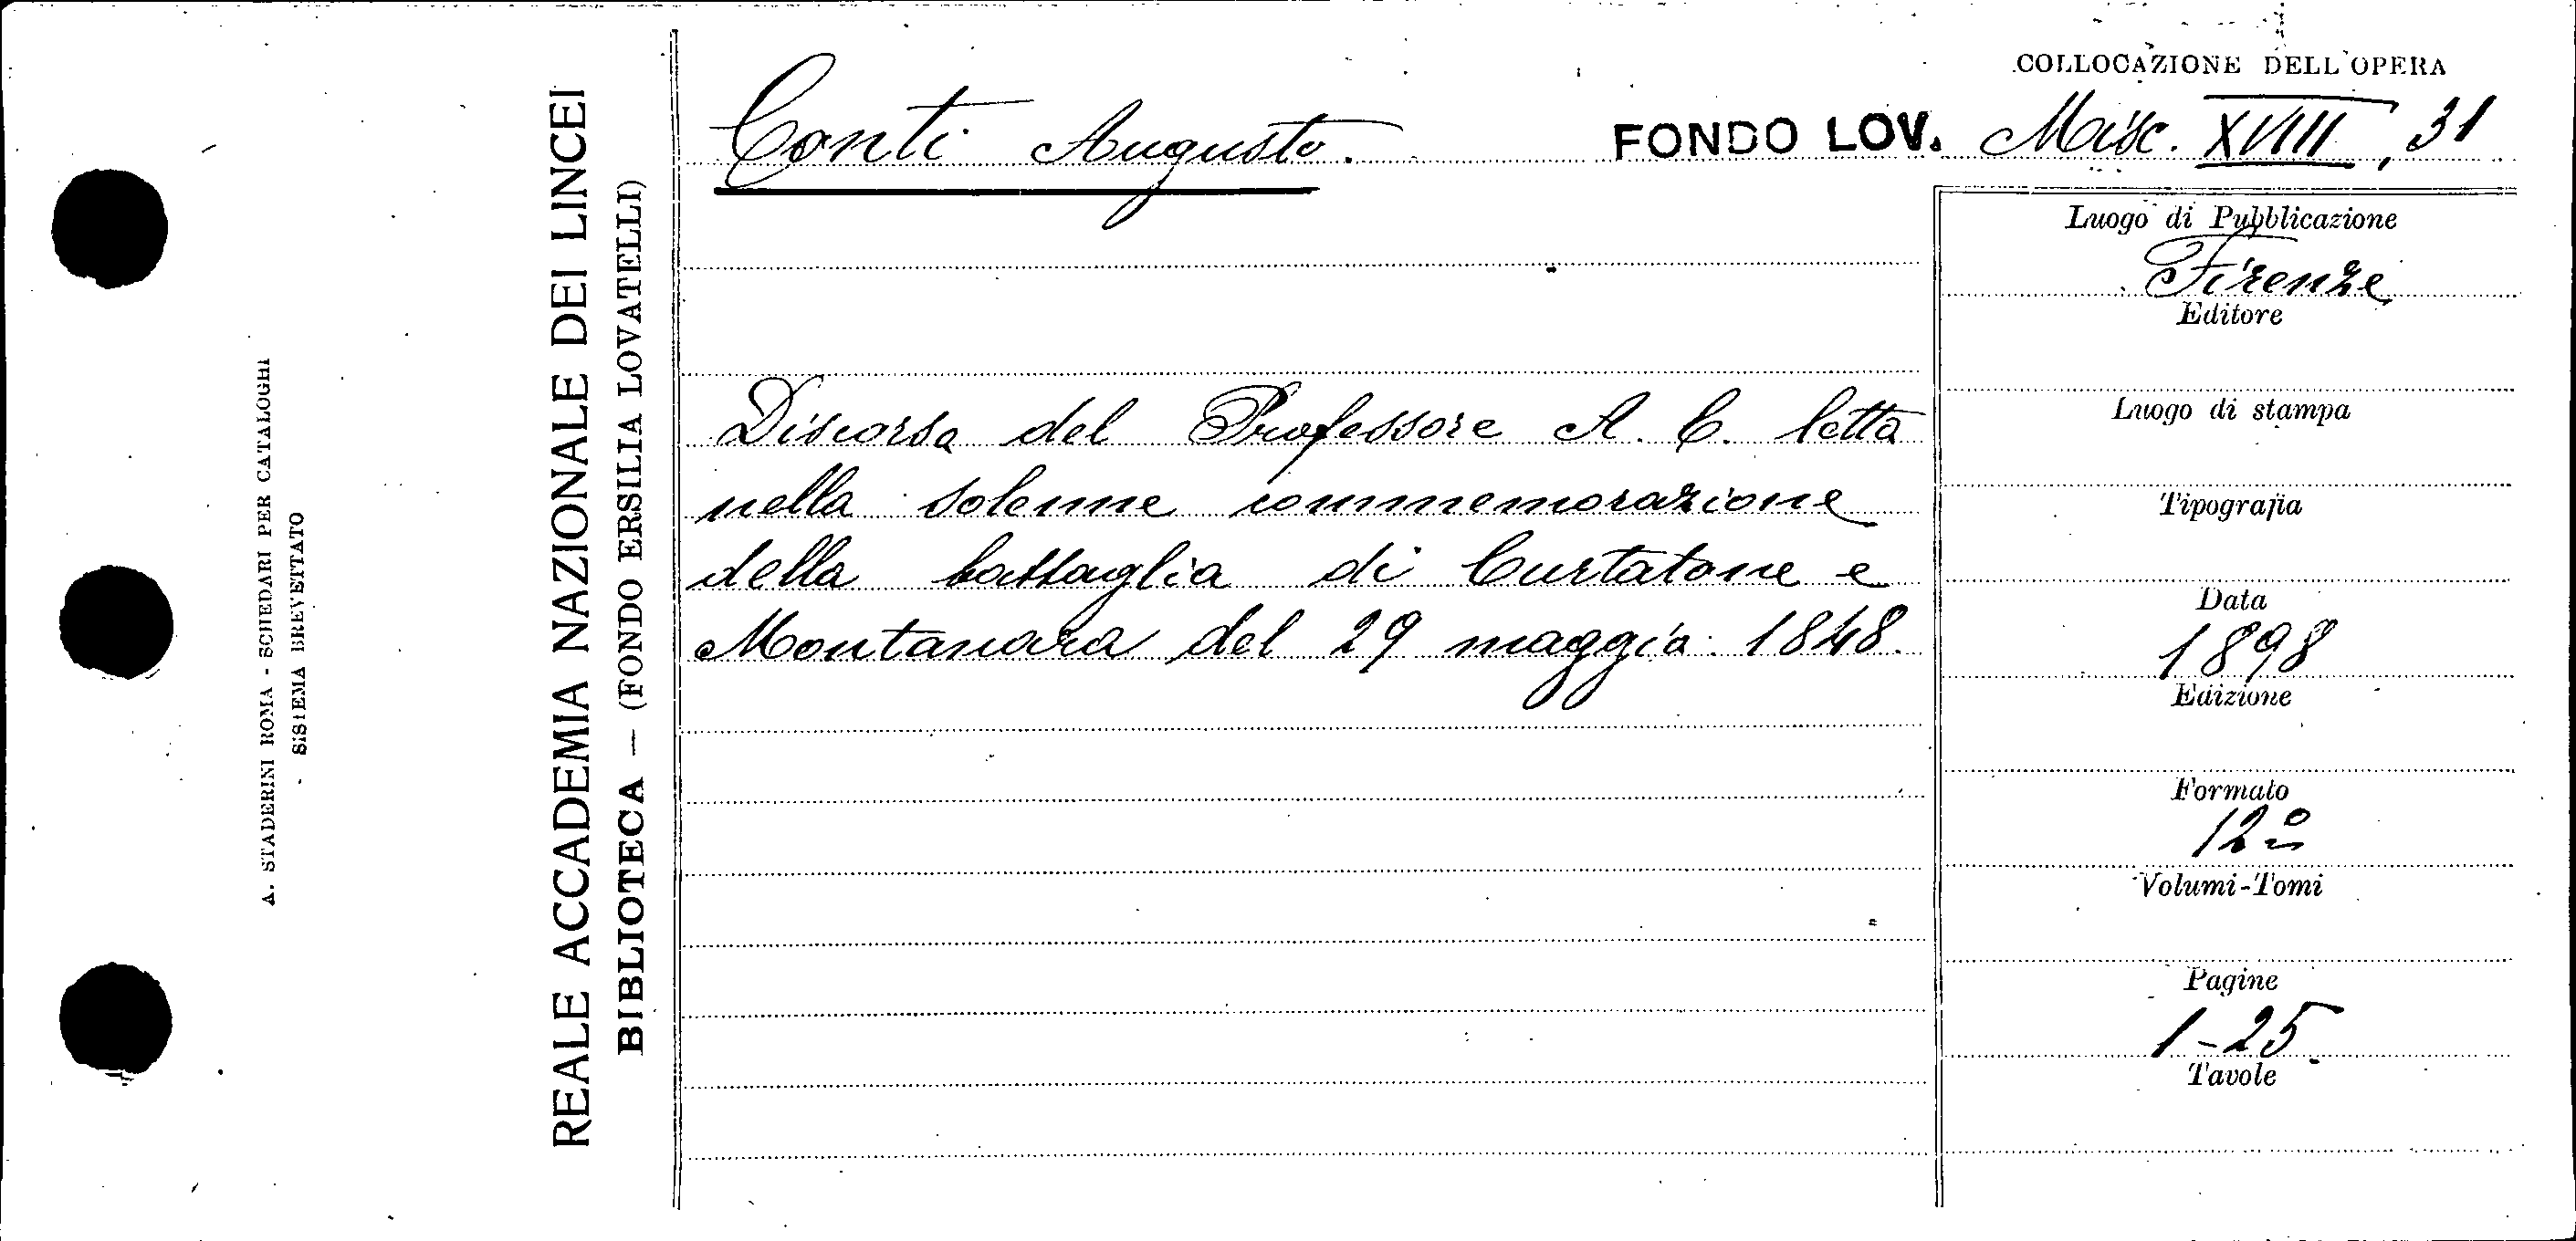 A. STADERINI ROMA - SCHEDARI PER CATALOGHI
SISTEMA BREVETTATO
REALE ACCADEMIA NAZIONALE DEI LINCEI
BIBLIOTECA — (FONDO ERSILIA LOVATELLI)
COLLOCAZIONE DELL'OPERA
Conti Augusto. FONDO LOV. Misc. XVIII, 31
Discorso del Professore A. C. letto
nella solenne commemorazione
della battaglia di Curtatone e
Montanara del 29 maggio 1848.
Luogo di Pubblicazione
Firenze
Editore
Luogo di stampa
Tipografia
Data
1898
Edizione
Formato
12º
Volumi-Tomi
Pagine
1-25.
Tavole